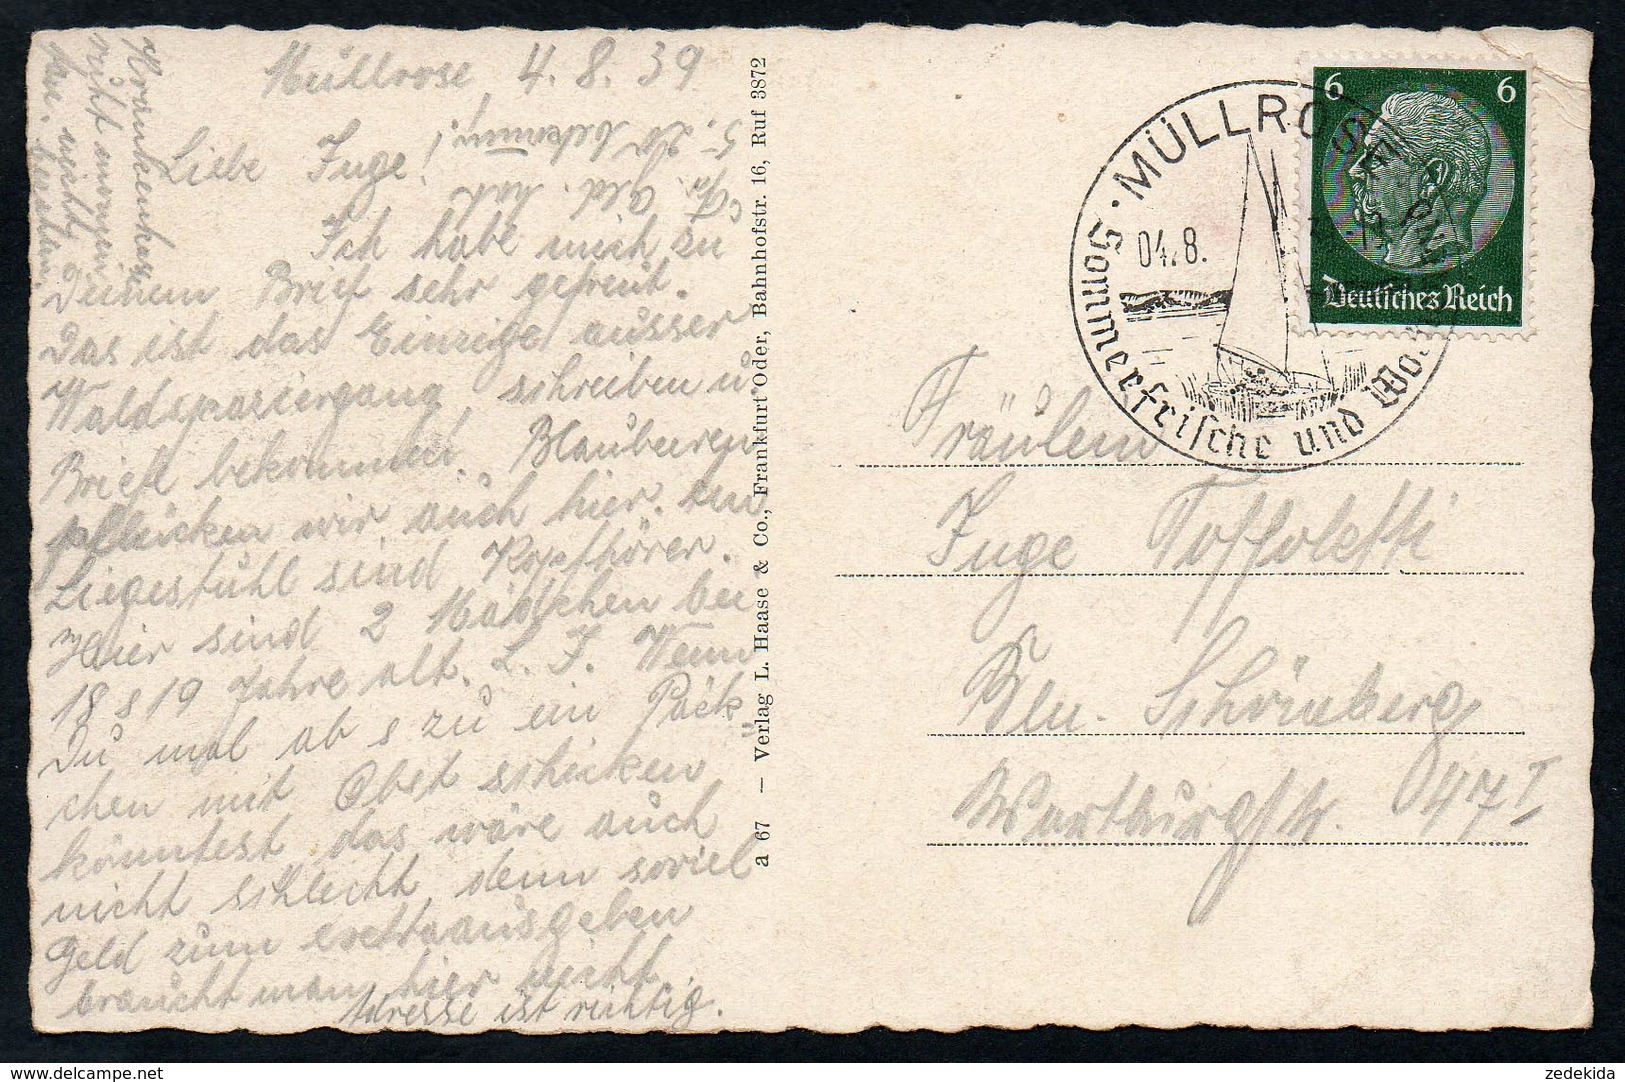 Müllrose 4. 8. 39
Liebe Inge!
Ich habe mich zu
Deinem Brief sehr gefreut.
Das ist das Einzige ausser
Waldspaziergang schreiben u.
Briefe bekommen. Blaubeeren
pflücken wir auch hier. Am
Liegestuhl sind Kopfhörer.
Hier sind 2 Mädchen bei
18 s 19 Jahre alt. L. I. Wenn
Du mal ab s zu ein Päck
chen mit Obst schicken
könntest das wäre auch
nicht schlecht denn soviel
Geld zum extraausgeben
braucht man hier nicht.
Adresse ist richtig.
Krankenhaus
nicht
nicht
5.
bekommen!
a 67 — Verlag L. Haase & Co., Frankfurt Oder, Bahnhofstr. 16, Ruf 3872
MÜLLROSE
04.8.
Sommerfrische und
6 6
Deutsches Reich
Fräulein
Inge Toffoletti
Bln. Schöneberg
Wartburgstr. 47 I
zedekida